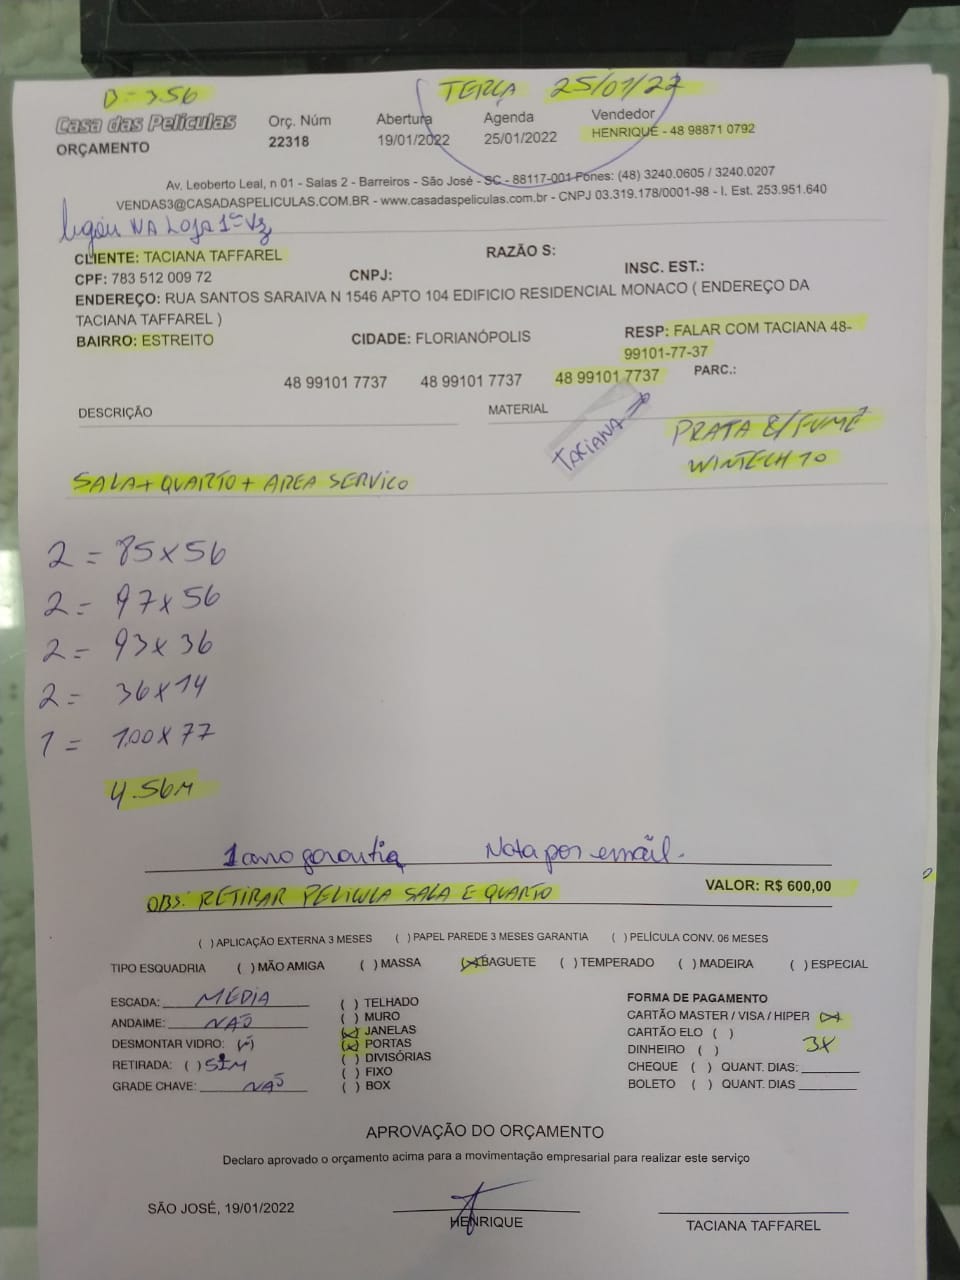 B-356
TERÇA 25/01/22
Casa das Películas
ORÇAMENTO
Orç. Núm
22318
Abertura
19/01/2022
Agenda
25/01/2022
Vendedor
HENRIQUE - 48 98871 0792
Av. Leoberto Leal, n 01 - Salas 2 - Barreiros - São José - SC - 88117-001 Fones: (48) 3240.0605 / 3240.0207
VENDAS3@CASADASPELICULAS.COM.BR - www.casadaspeliculas.com.br - CNPJ 03.319.178/0001-98 - I. Est. 253.951.640
ligou NA LOJA 1ª Vz
CLIENTE: TACIANA TAFFAREL
RAZÃO S:
CPF: 783 512 009 72
CNPJ:
INSC. EST.:
ENDEREÇO: RUA SANTOS SARAIVA N 1546 APTO 104 EDIFICIO RESIDENCIAL MONACO ( ENDEREÇO DA
TACIANA TAFFAREL )
BAIRRO: ESTREITO
CIDADE: FLORIANÓPOLIS
RESP: FALAR COM TACIANA 48-
99101-77-37
48 99101 7737 48 99101 7737 48 99101 7737 PARC.:
DESCRIÇÃO
MATERIAL
TACIANA
PRATA E/FUMÊ
WINTECH 10
SALA + QUARTO + AREA SERVICO
2 = 85x56
2 = 97x56
2 = 93x36
2 = 36x14
1 = 1.00x77
4.56M
1 ano garantia Nota por email.
OBS: RETIRAR PELICULA SALA E QUARTO
VALOR: R$ 600,00
( ) APLICAÇÃO EXTERNA 3 MESES ( ) PAPEL PAREDE 3 MESES GARANTIA ( ) PELÍCULA CONV. 06 MESES
TIPO ESQUADRIA ( ) MÃO AMIGA ( ) MASSA (X) BAGUETE ( ) TEMPERADO ( ) MADEIRA ( ) ESPECIAL
ESCADA: MEDIA
ANDAIME: NAO
DESMONTAR VIDRO: (N)
RETIRADA: ( ) SIM
GRADE CHAVE: NAO
( ) TELHADO
( ) MURO
(X) JANELAS
(X) PORTAS
( ) DIVISÓRIAS
( ) FIXO
( ) BOX
FORMA DE PAGAMENTO
CARTÃO MASTER / VISA / HIPER (X)
CARTÃO ELO ( )
DINHEIRO ( ) 3X
CHEQUE ( ) QUANT. DIAS:
BOLETO ( ) QUANT. DIAS
APROVAÇÃO DO ORÇAMENTO
Declaro aprovado o orçamento acima para a movimentação empresarial para realizar este serviço
SÃO JOSÉ, 19/01/2022
HENRIQUE
TACIANA TAFFAREL